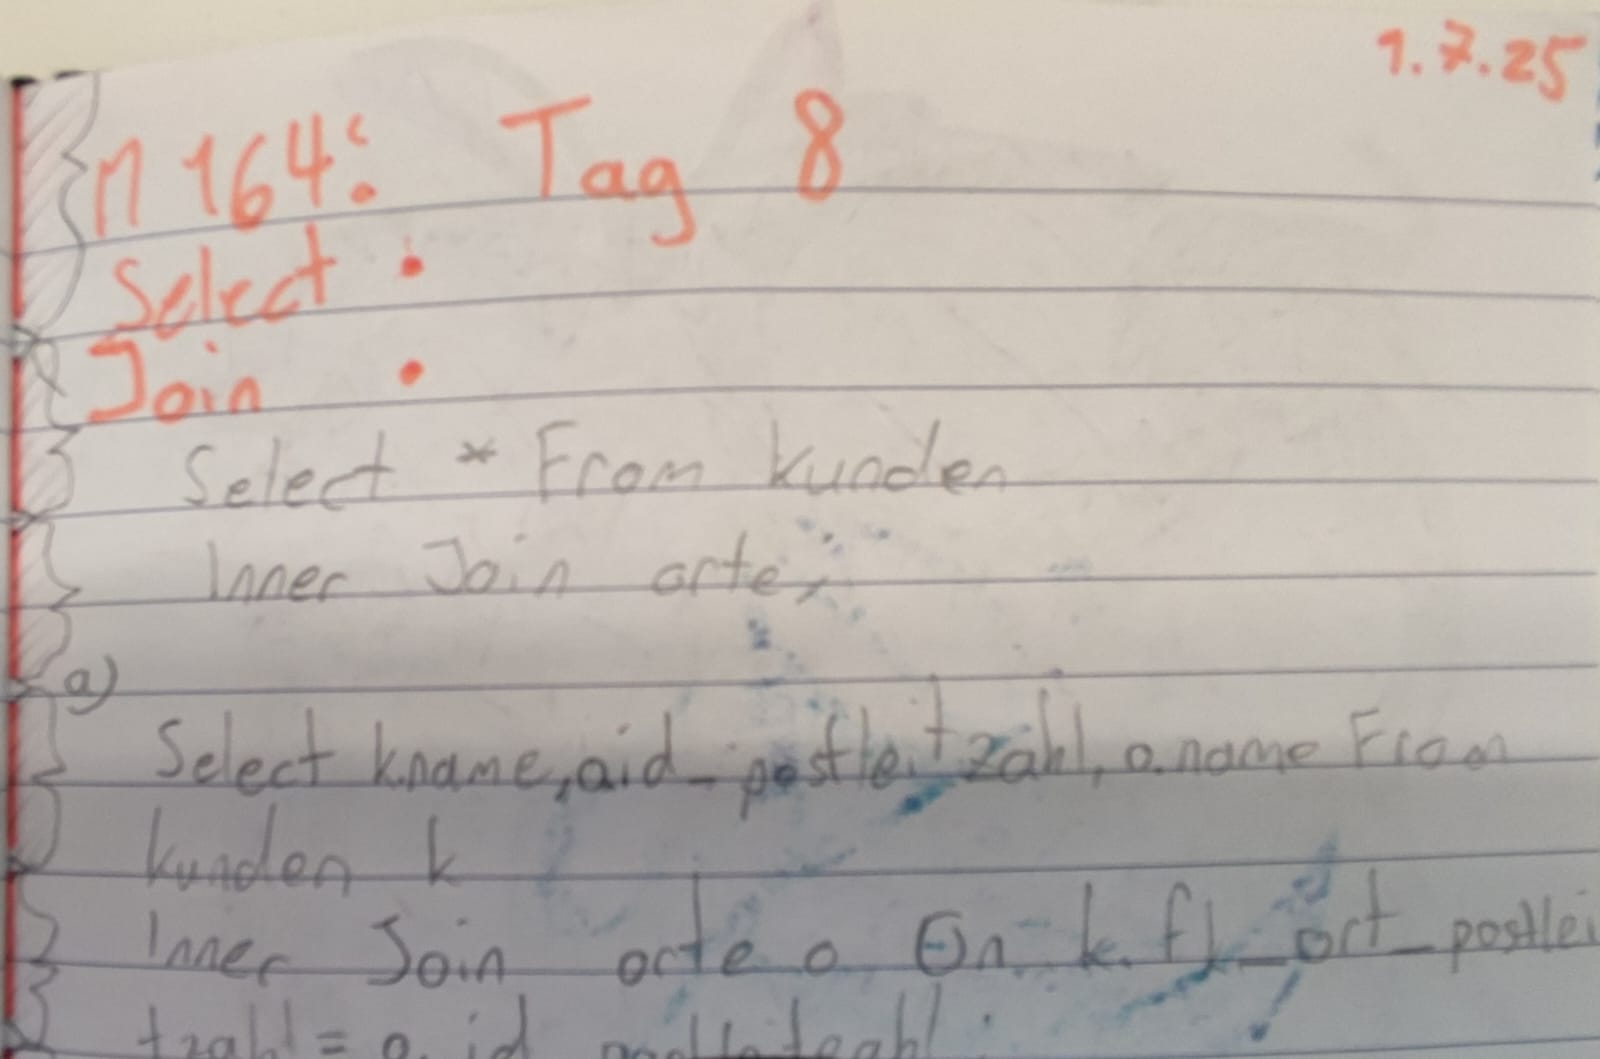 1.7.25
M 164: Tag 8
Select :
Join
Select * From kunden
Inner Join orte;
a)
Select k.name, o.id_postleitzahl, o.name From
kunden k
Inner Join orte o On k.fk_ort_postlei
tzahl = o.id_postleitzahl;